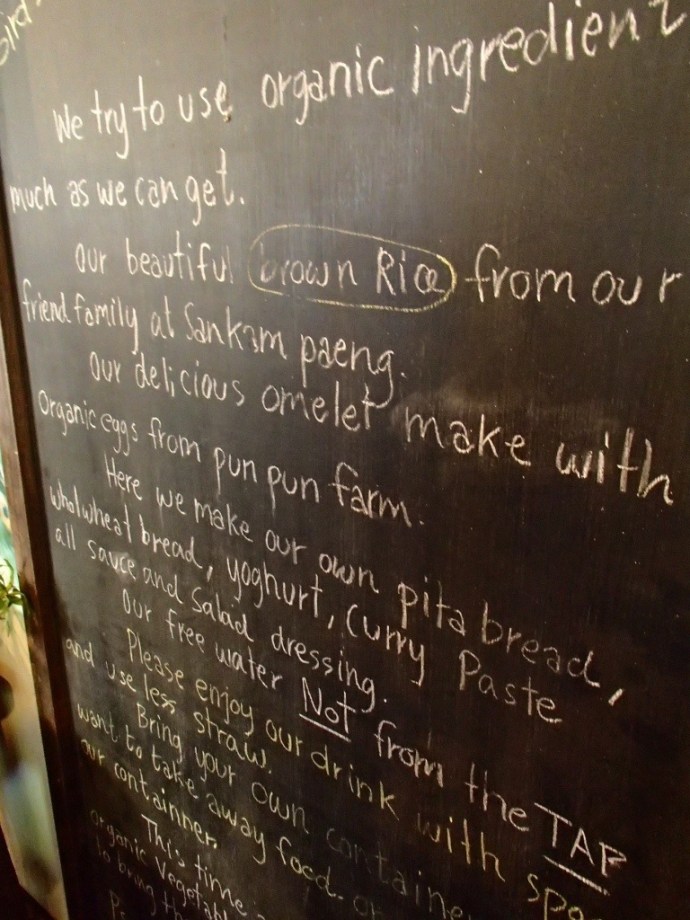 bird
We try to use organic ingredient
much as we can get.
Our beautiful brown Rice from our
friend family at Sankam paeng.
Our delicious omelet make with
Organic eggs from pun pun farm.
Here we make our own pita bread,
wholwheat bread, yoghurt, Curry Paste
all sauce and Salad dressing.
Our free water Not from the TAP
Please enjoy our drink with
and use less straw.
Bring your own container
want to take away food. or
our containner.
This time
organic Vegetabl
to bring